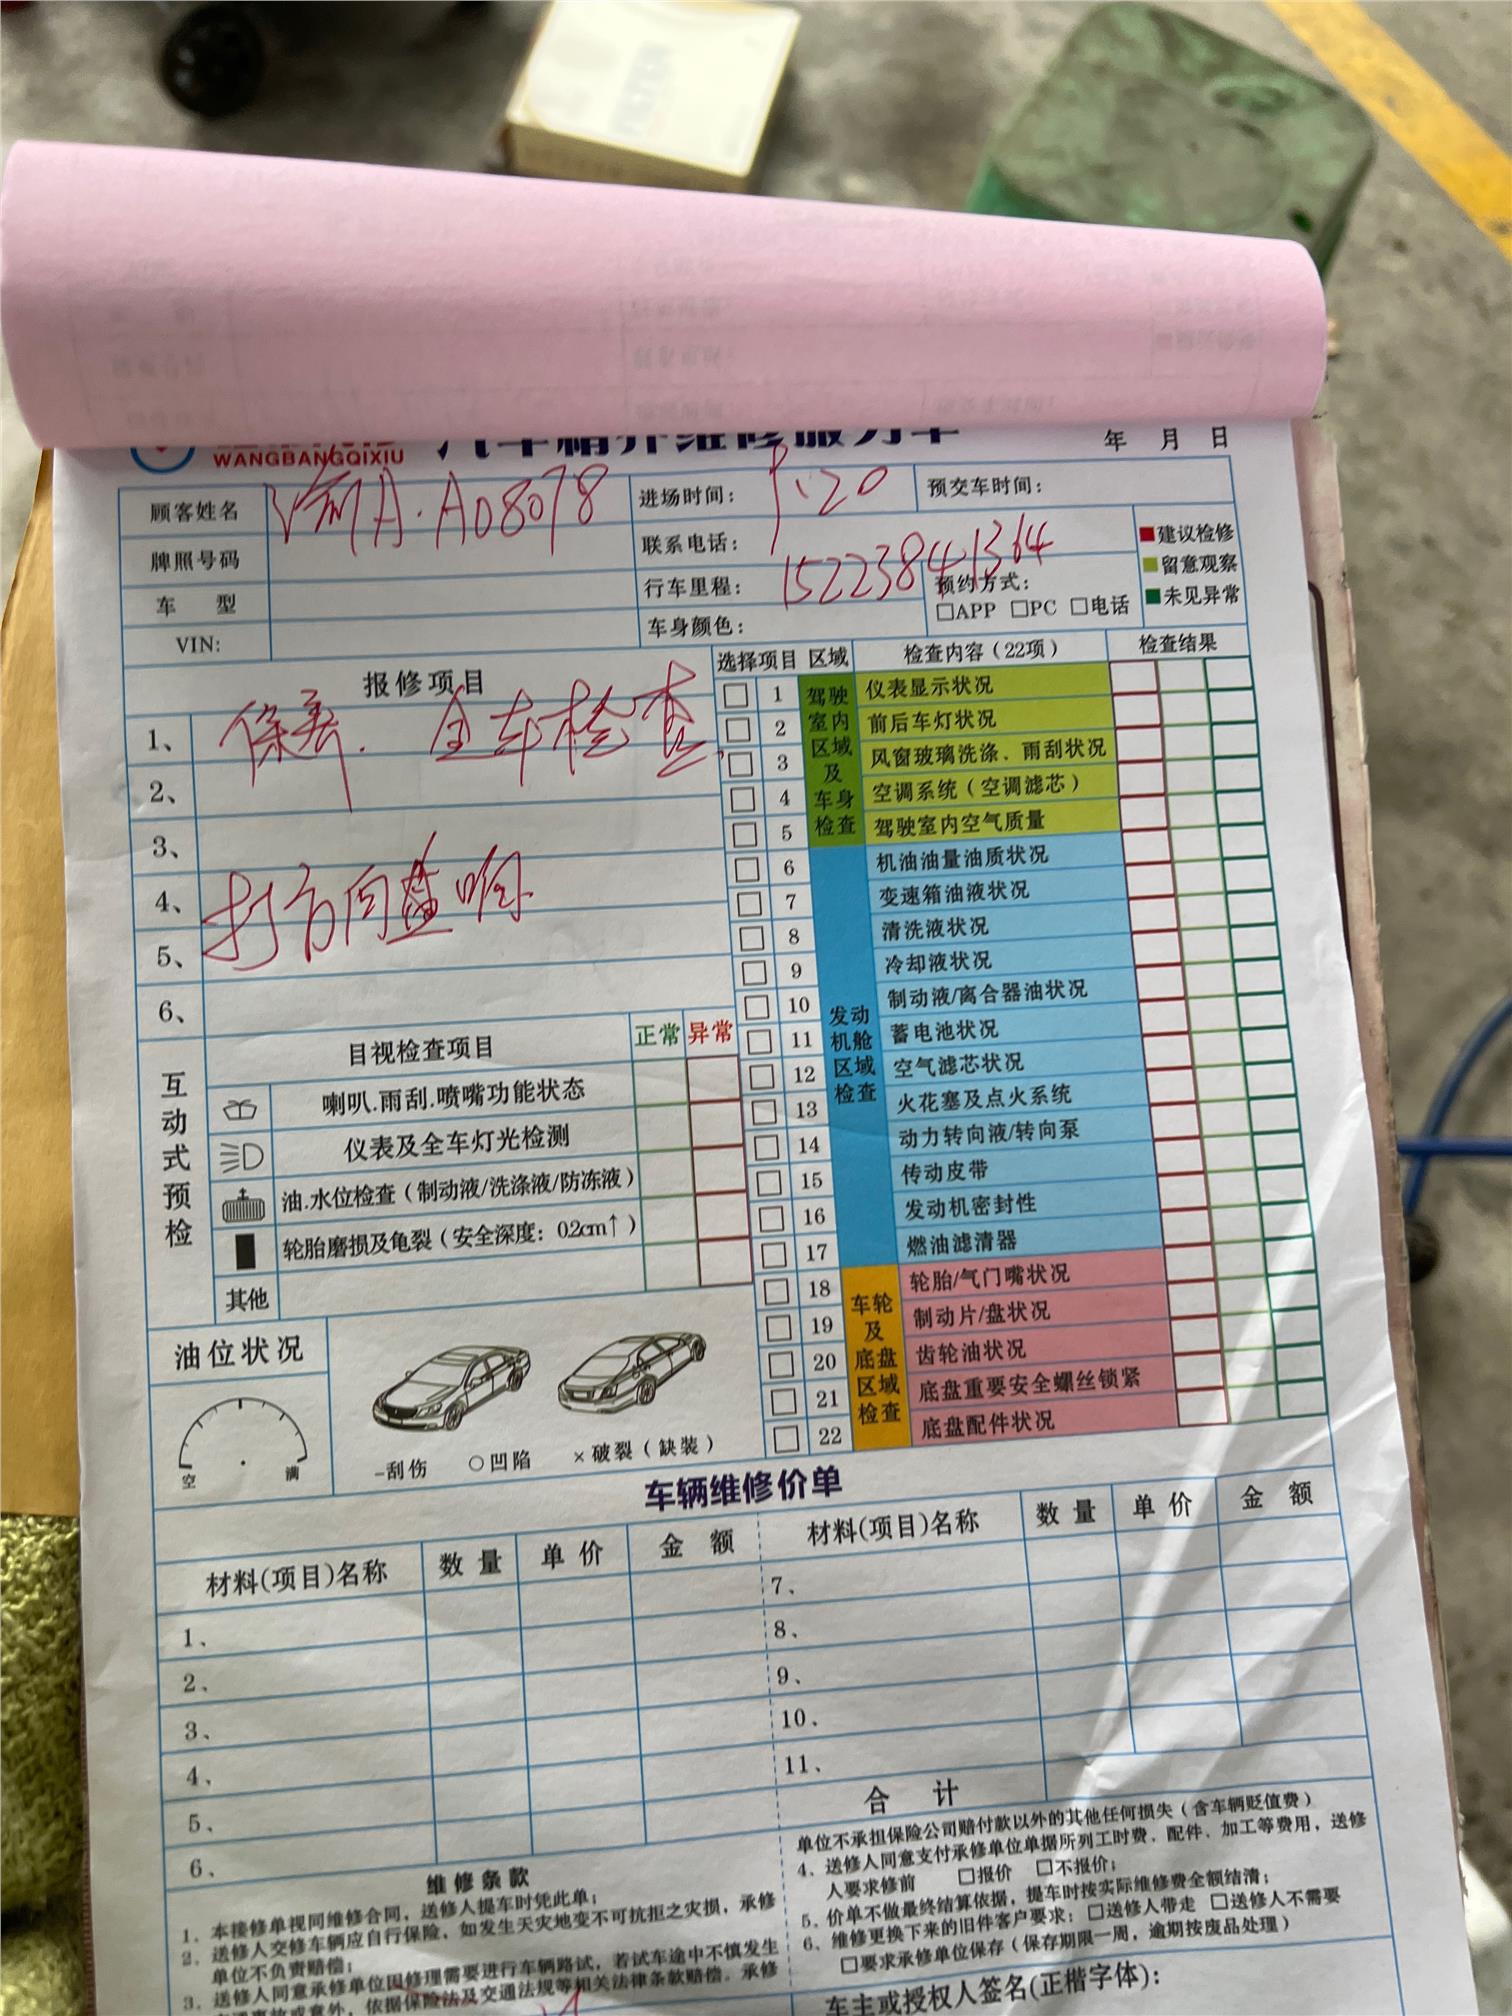 WANGBANGQIXIU
汽车精养维修服务单
年 月 日
顾客姓名 渝A·A08078 进场时间: 9、20 预交车时间:
牌照号码 联系电话: 15223841364
车 型 行车里程: 预约方式:
□APP □PC □电话
VIN: 车身颜色:
■建议检修
■留意观察
■未见异常
报修项目
1、 保养. 全车检查
2、
3、
4、 打方向盘响
5、
6、
选择项目 区域 检查内容(22项) 检查结果
驾驶室内区域及车身检查
□ 1 仪表显示状况
□ 2 前后车灯状况
□ 3 风窗玻璃洗涤、雨刮状况
□ 4 空调系统(空调滤芯)
□ 5 驾驶室内空气质量
发动机舱区域检查
□ 6 机油油量油质状况
□ 7 变速箱油液状况
□ 8 清洗液状况
□ 9 冷却液状况
□ 10 制动液/离合器油状况
□ 11 蓄电池状况
□ 12 空气滤芯状况
□ 13 火花塞及点火系统
□ 14 动力转向液/转向泵
□ 15 传动皮带
□ 16 发动机密封性
□ 17 燃油滤清器
车轮及底盘区域检查
□ 18 轮胎/气门嘴状况
□ 19 制动片/盘状况
□ 20 齿轮油状况
□ 21 底盘重要安全螺丝锁紧
□ 22 底盘配件状况
互动式预检
目视检查项目 正常 异常
喇叭.雨刮.喷嘴功能状态
仪表及全车灯光检测
油.水位检查(制动液/洗涤液/防冻液)
轮胎磨损及龟裂(安全深度:0.2cm↑)
其他
油位状况
空 满
-刮伤 ○凹陷 ×破裂(缺装)
车辆维修价单
材料(项目)名称 数量 单价 金额 材料(项目)名称 数量 单价 金额
1、 7、
2、 8、
3、 9、
4、 10、
5、 11、
6、 合 计
维修条款
1、本接修单视同维修合同,送修人提车时凭此单;
2、送修人交修车辆应自行保险,如发生天灾地变不可抗拒之灾损,承修
单位不负责赔偿;
3、送修人同意承修单位因修理需要进行车辆路试,若试车途中不慎发生
交通事故或意外,依据保险法及交通法规等相关法律条款赔偿。承修
单位不承担保险公司赔付款以外的其他任何损失(含车辆贬值费)
4、送修人同意支付承修单位单据所列工时费、配件、加工等费用,送修
人要求修前 □报价 □不报价;
5、价单不做最终结算依据,提车时按实际维修费全额结清;
6、维修更换下来的旧件客户要求:□送修人带走 □送修人不需要
□要求承修单位保存(保存期限一周,逾期按废品处理)
车主或授权人签名(正楷字体):